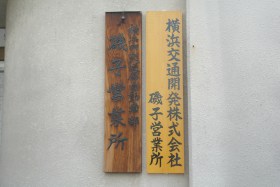 横浜交通開発株式会社
磯子営業所
磯子営業所